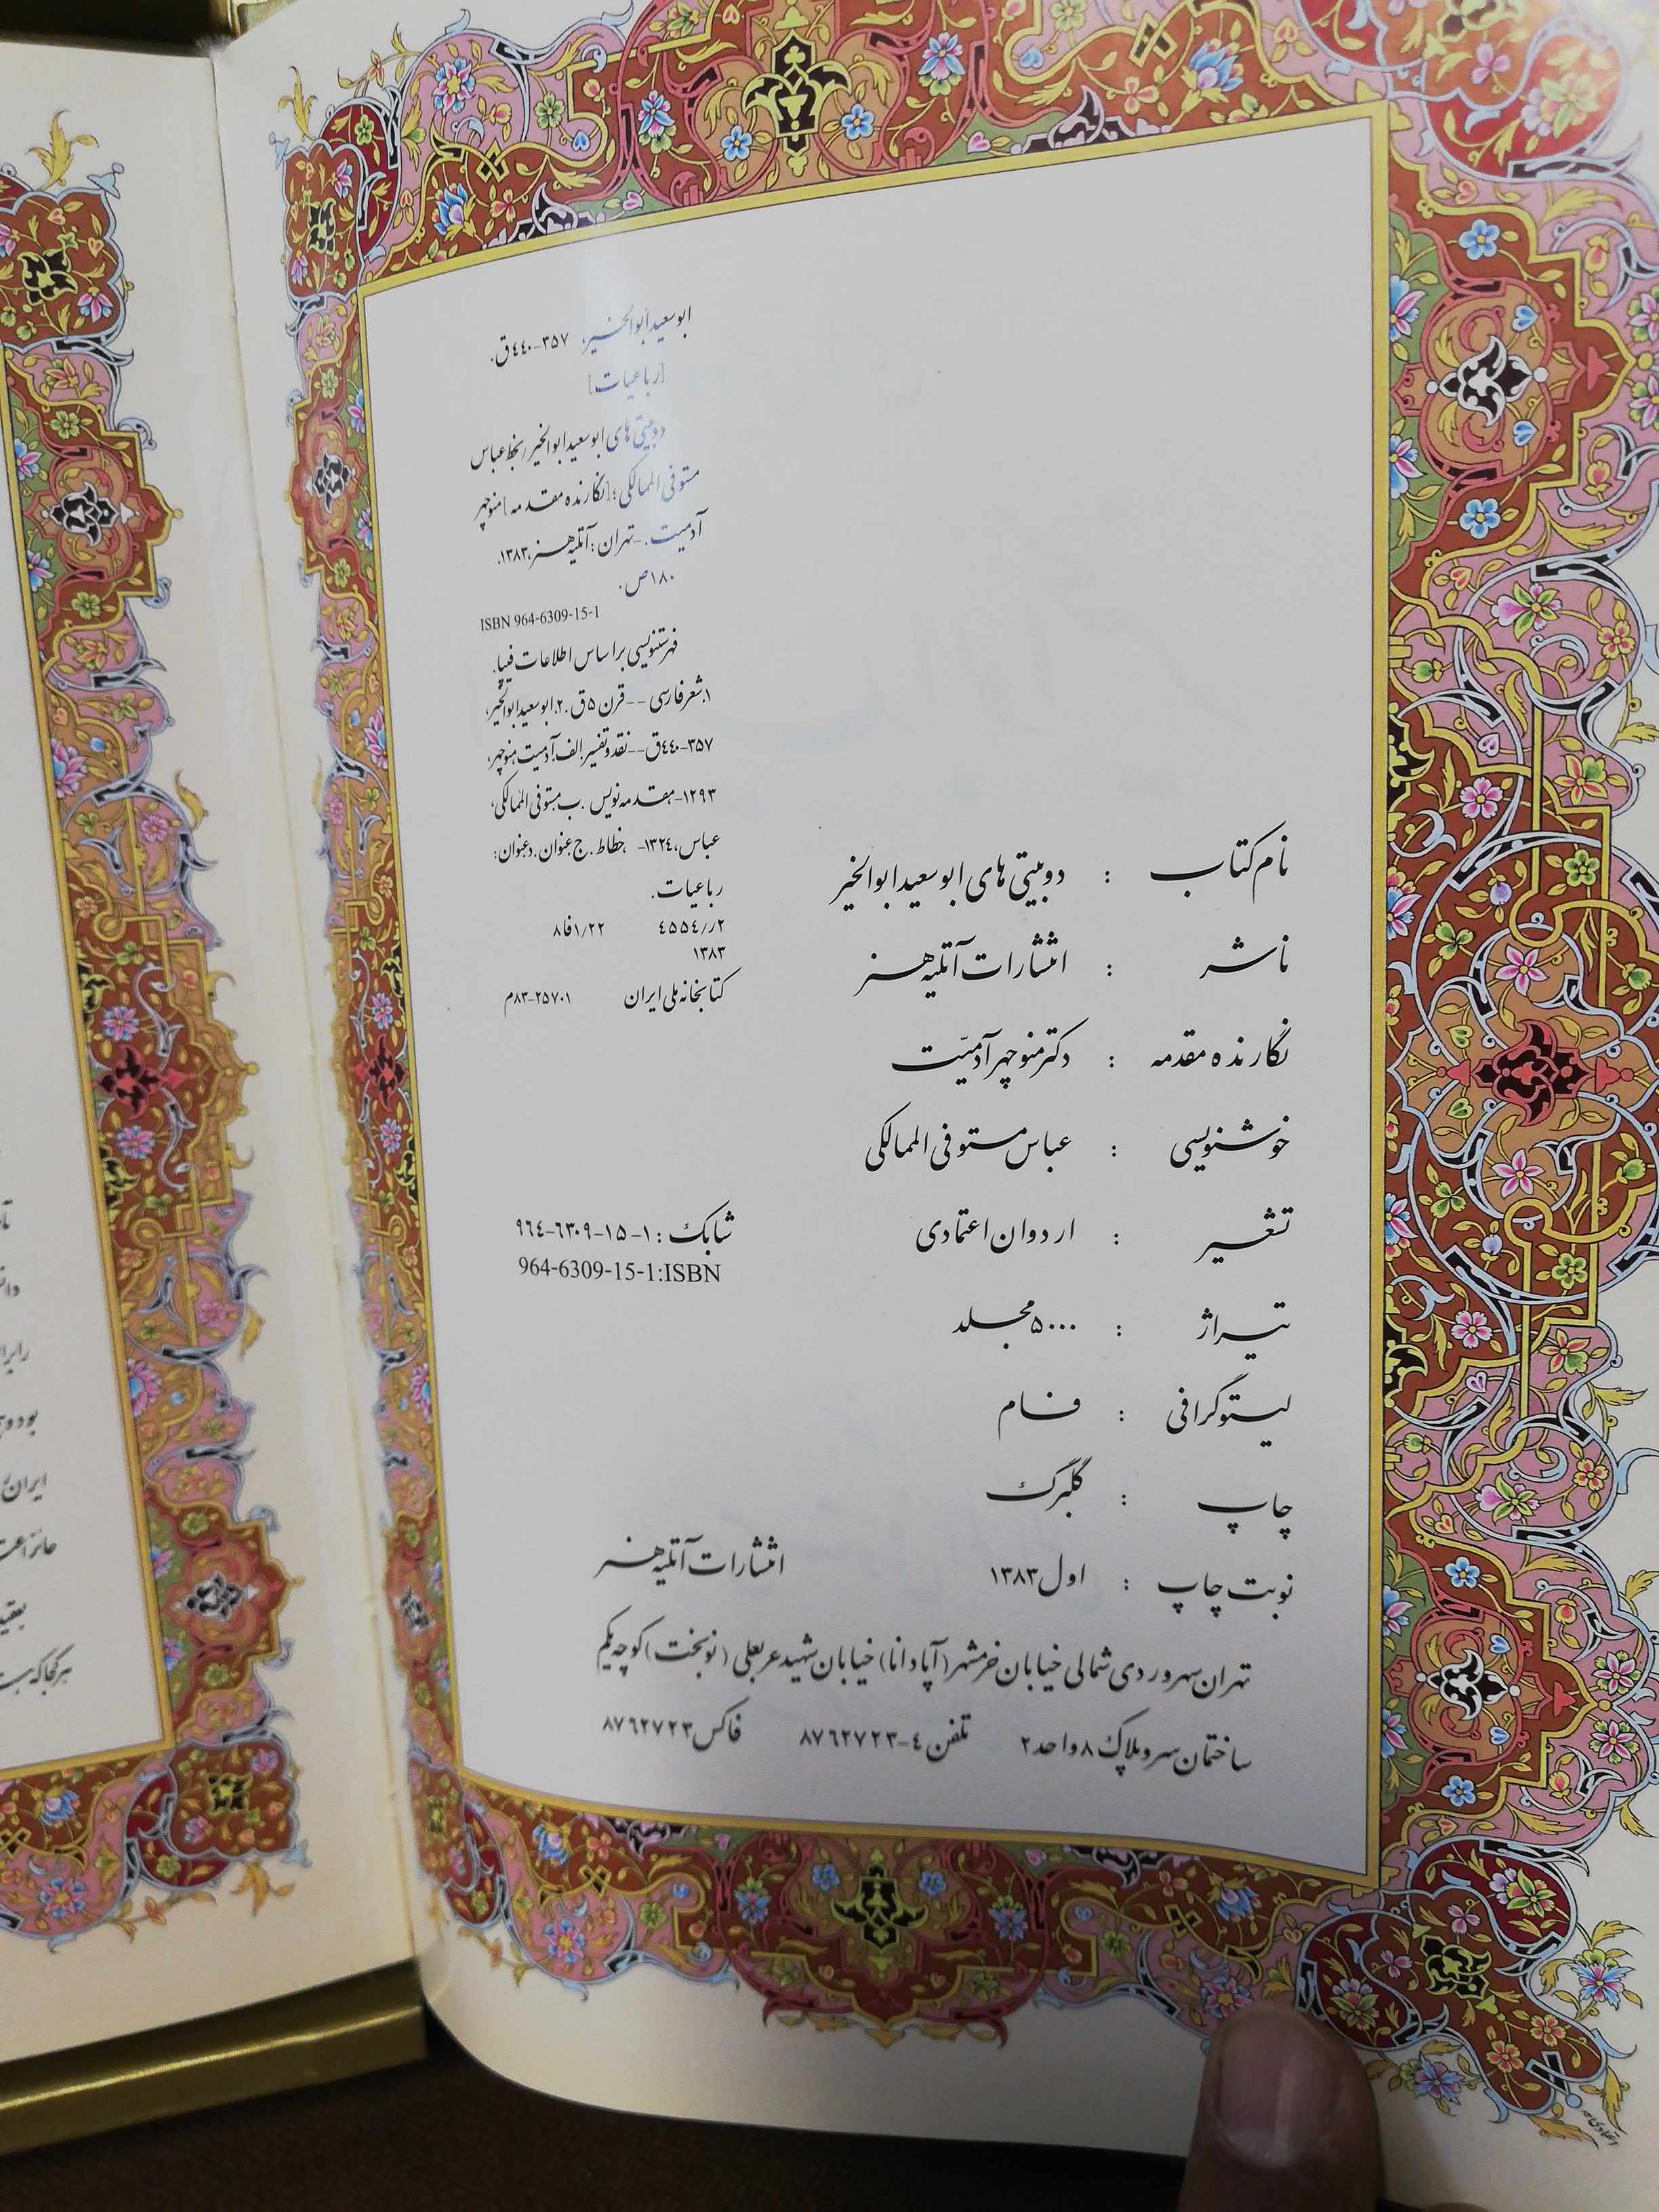 ابوسعید ابوالخیر، ۳۵۷-۴۴۰ق.
[رباعیات]
دوبیتی های ابوسعید ابوالخیر/بخط عباس
مستوفی الممالکی؛[نگارنده مقدمه]منوچهر
آدمیت.-تهران:آتلیه هنر،۱۳۸۳.
۱۸۰ص.
ISBN 964-6309-15-1
فهرستنویسی براساس اطلاعات فیپا.
۱.شعر فارسی--قرن ۵ق.۲.ابوسعید ابوالخیر،
۳۵۷-۴۴۰ق--نقد و تفسیر.الف.آدمیت،منوچهر،
۱۲۹۳-،مقدمه نویس.ب.مستوفی الممالکی،
عباس،۱۳۲۴- ،خطاط.ج.عنوان.د.عنوان:
رباعیات.
۲ر/۴۵۵۴ ۸فا۱/۲۲
۱۳۸۳
کتابخانه ملی ایران ۸۳-۲۵۷۰۱م
نام کتاب : دوبیتی های ابوسعید ابوالخیر
ناشر : انتشارات آتلیه هنر
نگارنده مقدمه : دکتر منوچهر آدمیّت
خوشنویسی : عباس مستوفی الممالکی
تشعیر : اردوان اعتمادی
شابک : ۱-۱۵-۶۳۰۹-۹۶۴
964-6309-15-1:ISBN
تیراژ : ۵۰۰۰ مجلد
لیتوگرافی : فام
چاپ : گلبرگ
نوبت چاپ : اول ۱۳۸۳
انتشارات آتلیه هنر
تهران سهروردی شمالی خیابان خرمشهر(آپادانا) خیابان شهید عربعلی (نوبخت) کوچه یکم
ساختمان سرو پلاک ۸ واحد ۲ تلفن ۴-۸۷۶۲۷۲۳ فاکس ۸۷۶۲۷۲۳